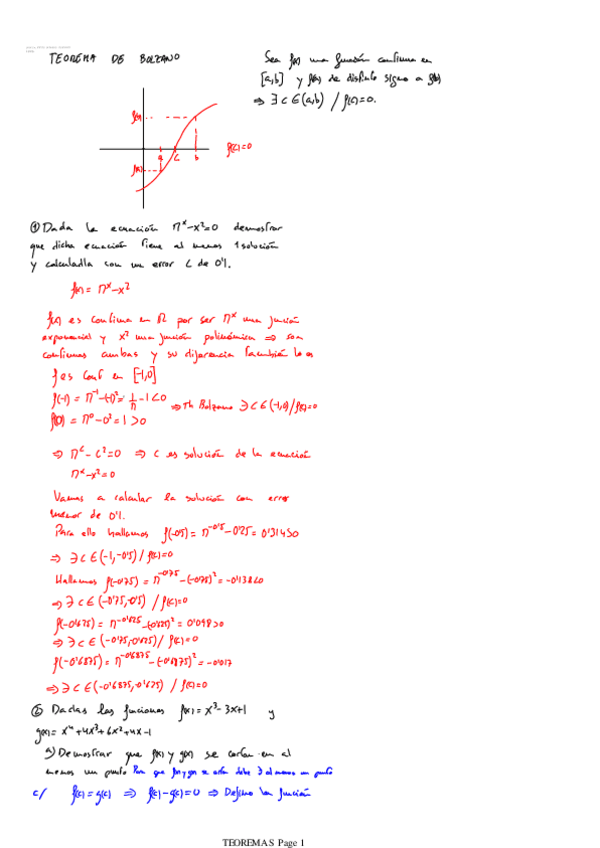 TEOREMA DE BOLZANO
Sea f(x) una función continua en
[a,b] y f(a) de distinto signo a f(b)
⇒ ∃ c ∈ (a,b) / f(c)=0.
f(b)
a c b
f(c)=0
f(a)
① Dada la ecuación π^x-x²=0 demostrar
que dicha ecuación tiene al menos 1 solución
y calculadla con un error < de 0'1.
f(x) = π^x-x²
f(x) es continua en ℝ por ser π^x una función
exponencial y x² una función polinómica ⇒ son
continuas ambas y su diferencia también lo es
f es cont en [-1,0]
f(-1) = π^-1-(-1)² = 1/π - 1 < 0
⇒ Th Bolzano ∃ c ∈ (-1,0) / f(c)=0
f(0) = π^0-0² = 1 > 0
⇒ π^c-c²=0 ⇒ c es solución de la ecuación
π^x-x²=0
Vamos a calcular la solución con error
menor de 0'1.
Para ello hallamos f(-0'5) = π^-0'5-0'25 = 0'314>0
⇒ ∃ c ∈ (-1,-0'5) / f(c)=0
Hallamos f(-0'75) = π^-0'75-(-0'75)² = -0'138<0
⇒ ∃ c ∈ (-0'75,-0'5) / f(c)=0
f(-0'625) = π^-0'625-(-0'625)² = 0'098>0
⇒ ∃ c ∈ (-0'75,-0'625) / f(c)=0
f(-0'6875) = π^-0'6875-(-0'6875)² = -0'017
⇒ ∃ c ∈ (-0'6875,-0'625) / f(c)=0
② Dadas las funciones f(x) = x³-3x+1 y
g(x) = x⁴+4x³+6x²+4x-1
a) Demostrar que f(x) y g(x) se cortan en al
menos un punto Para que f(x) y g(x) se corten debe ∃ al menos un punto
c/ f(c) = g(c) ⇒ f(c)-g(c)=0 ⇒ Defino la función
TEOREMAS Page 1